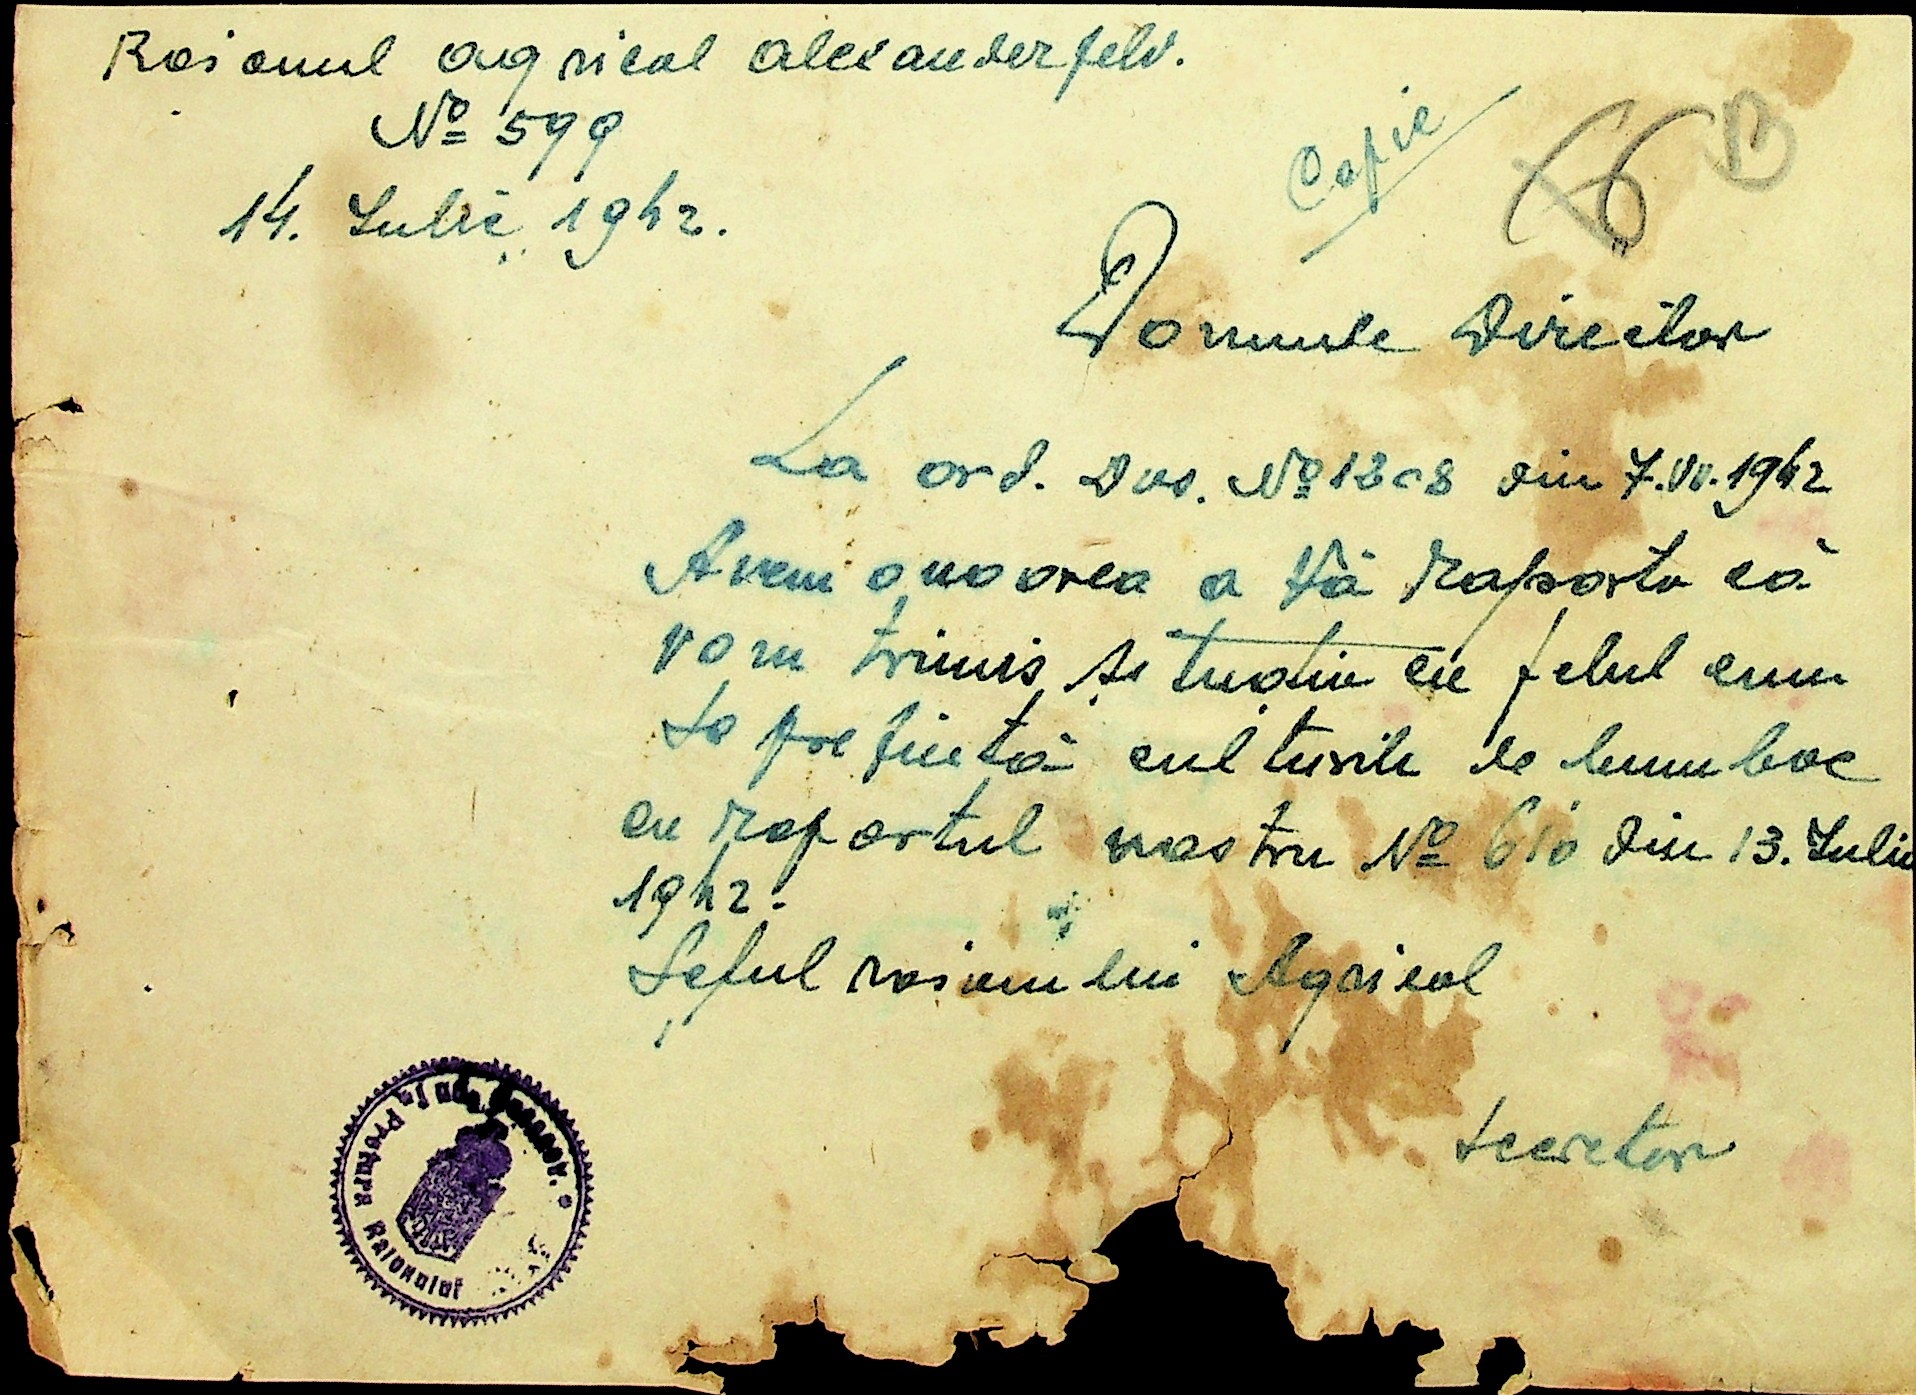 Raionul agricol Alexanderfeld.
№ 599
14. Iulie 1942.
Copie
66 B
Domnule Director
La ord. Dvs. № 1208 din 7.VII.1942
Avem onoarea a Vă raporta că
vom trimis situatia cu felul cum
se prezintă culturile de bumbac
cu raportul nostru № 610 din 13. Iulie
1942.
Șeful raionului Agricol
Secretar
Pretura Raionului